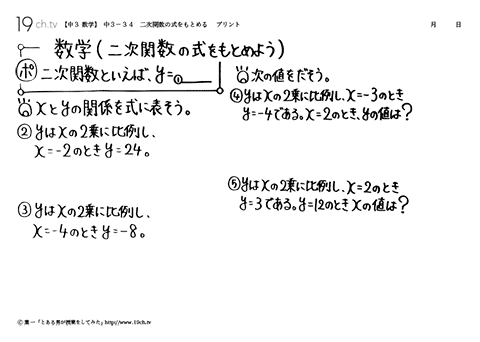 19 ch.tv 【中3 数学】 中3－34 二次関数の式をもとめる プリント 月 日
数学(二次関数の式をもとめよう)
ポ 二次関数といえば、y=①
xとyの関係を式に表そう。
②yはxの2乗に比例し、
x=-2のときy=24。
③yはxの2乗に比例し、
x=-4のときy=-8。
次の値をだそう。
④yはxの2乗に比例し、x=-3のとき
y=-4である。x=2のとき、yの値は?
⑤yはxの2乗に比例し、x=2のとき
y=3である。y=12のときxの値は?
© 葉一「とある男が授業をしてみた」http://www.19ch.tv